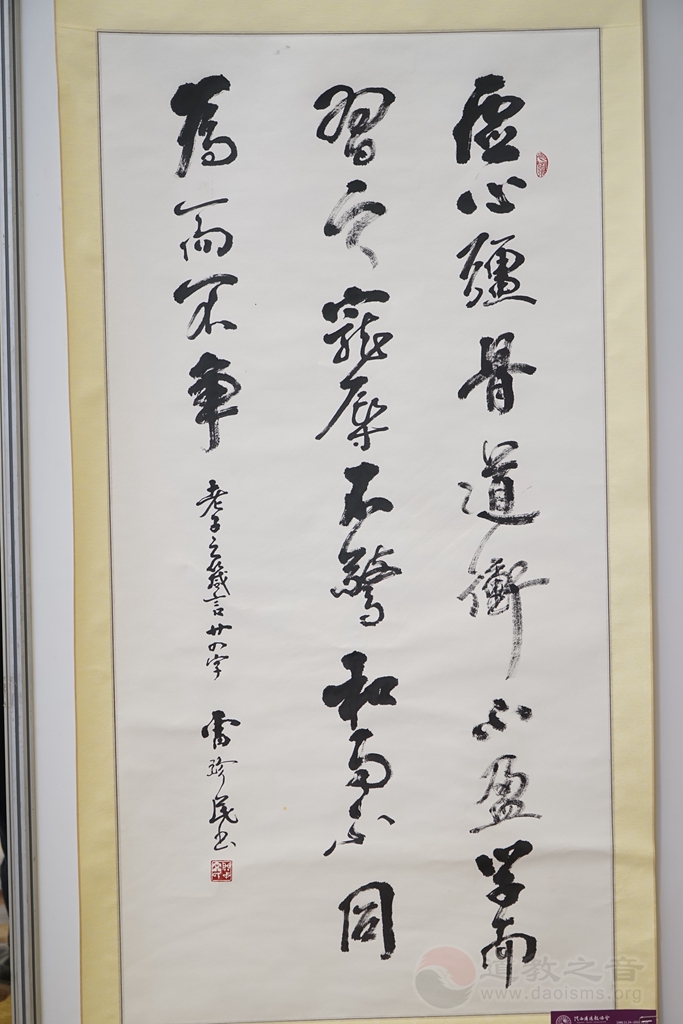 虚心彊骨道衝不盈学而
習之寵辱不驚和而不同
為而不争
老子之箴言廿四字 雷珍民书
道教之音
www.daoisms.org